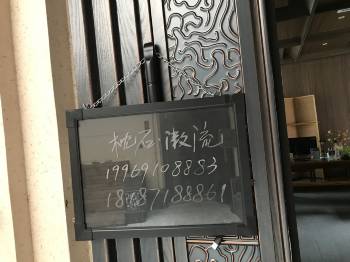 枕石漱流
19969108883
18187188861